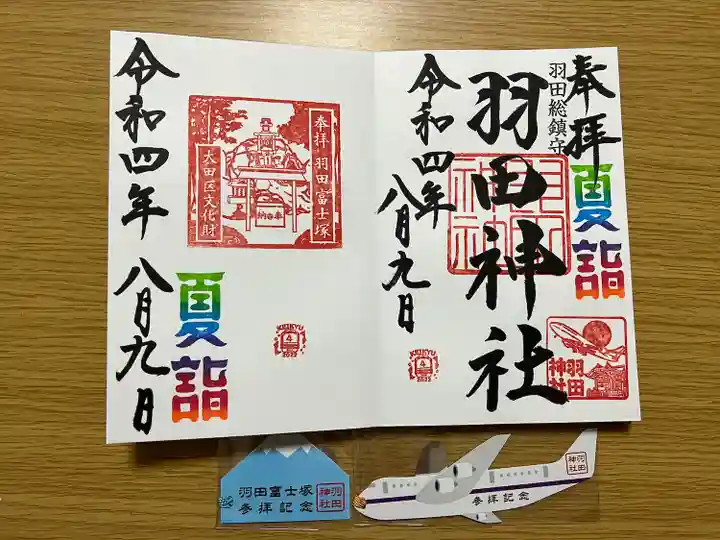 奉拝
夏詣
羽田総鎮守
羽田神社
羽田
神社
令和四年
八月九日
KEIKYU
4
2022
奉拝 羽田富士塚
奉納
大田区文化財
夏詣
令和四年 八月九日
KEIKYU
4
2022
羽田富士塚
参拝記念
羽田
神社
羽田
神社
参拝記念